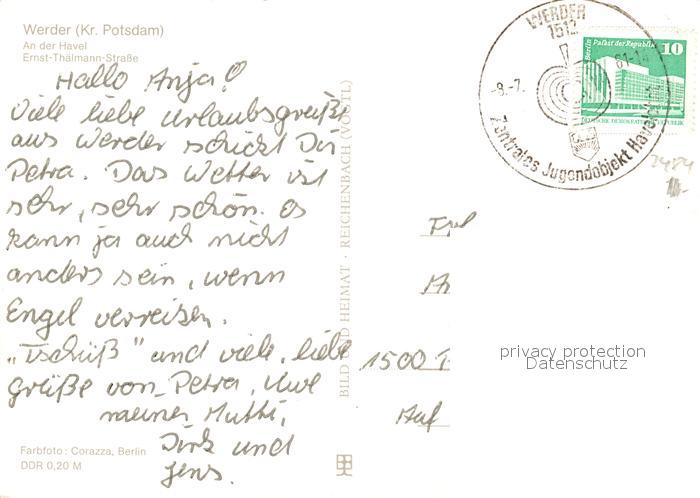 Werder (Kr. Potsdam)
An der Havel
Ernst-Thälmann-Straße
Hallo Anja!
Viele liebe Urlaubsgrüße
aus Werder schickt Dir
Petra. Das Wetter ist
sehr, sehr schön. Es
kann ja auch nicht
anders sein, wenn
Engel verreisen.
„Tschüß" und viele, liebe
Grüße von Petra, Uwe
meiner Mutti,
Dirk und
Jens.
Farbfoto: Corazza, Berlin
DDR 0,20 M
BILD UND HEIMAT · REICHENBACH (VOGTL)
WERDER
1512
-8.-7.
81-14
Zentrales Jugendobjekt Havelobst
Berlin Palast der Republik
10
DEUTSCHE DEMOKRATISCHE REPUBLIK
7484
1500
Auf
privacy protection
Datenschutz